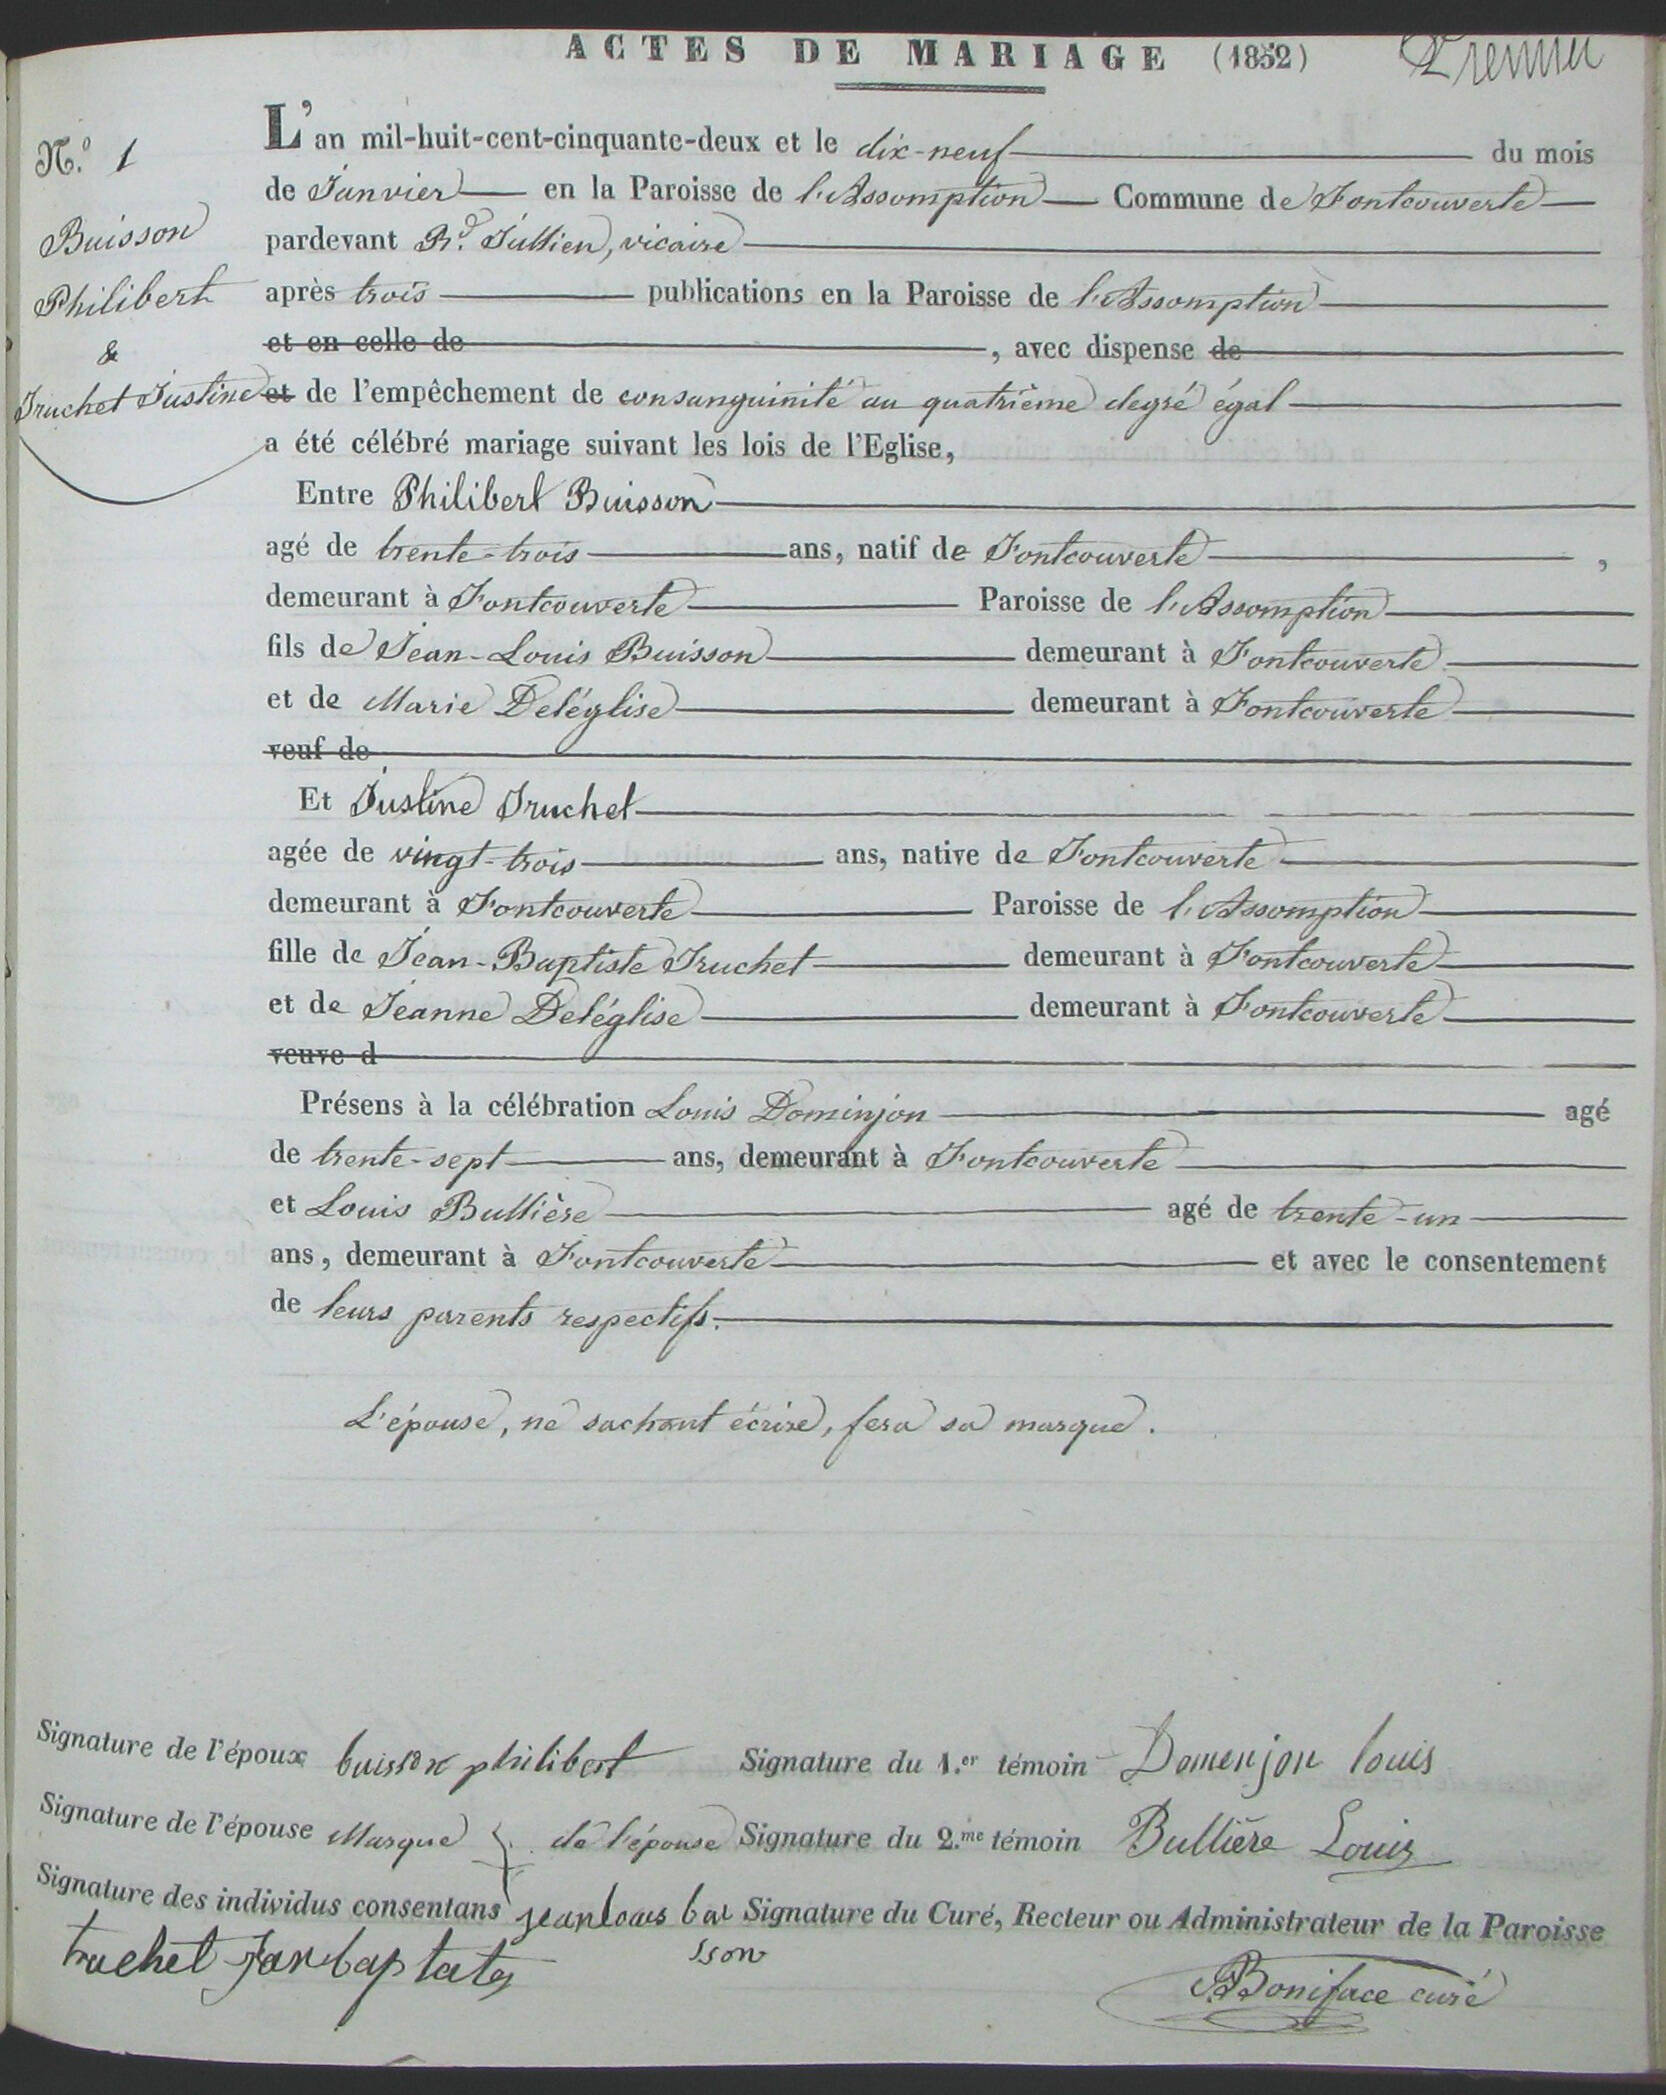 ACTES DE MARIAGE (1852) Premier
N.o 1
Buisson
Philibert
&
Truchet Justine
L'an mil-huit-cent-cinquante-deux et le dix-neuf du mois
de Janvier en la Paroisse de l'Assomption Commune de Fontcouverte
pardevant Rd. Jullien, vicaire
après trois publications en la Paroisse de l'Assomption
et en celle de , avec dispense de
et de l'empêchement de consanguinité au quatrième degré égal
a été célébré mariage suivant les lois de l'Eglise,
Entre Philibert Buisson
agé de trente-trois ans, natif de Fontcouverte ,
demeurant à Fontcouverte Paroisse de l'Assomption
fils de Jean-Louis Buisson demeurant à Fontcouverte
et de Marie Deléglise demeurant à Fontcouverte
veuf de
Et Justine Truchet
agée de vingt-trois ans, native de Fontcouverte
demeurant à Fontcouverte Paroisse de l'Assomption
fille de Jean-Baptiste Truchet demeurant à Fontcouverte
et de Jeanne Deléglise demeurant à Fontcouverte
veuve d
Présens à la célébration Louis Dominjon agé
de trente-sept ans, demeurant à Fontcouverte
et Louis Bullière agé de trente-un
ans, demeurant à Fontcouverte et avec le consentement
de leurs parents respectifs.
L'épouse, ne sachant écrire, fera sa marque.
Signature de l'époux buisson philibert Signature du 1.er témoin Domenjon louis
Signature de l'épouse Marque de l'épouse Signature du 2.me témoin Bullière Louis
Signature des individus consentans jeanlouis bui Signature du Curé, Recteur ou Administrateur de la Paroisse
sson
truchet
Boniface curé